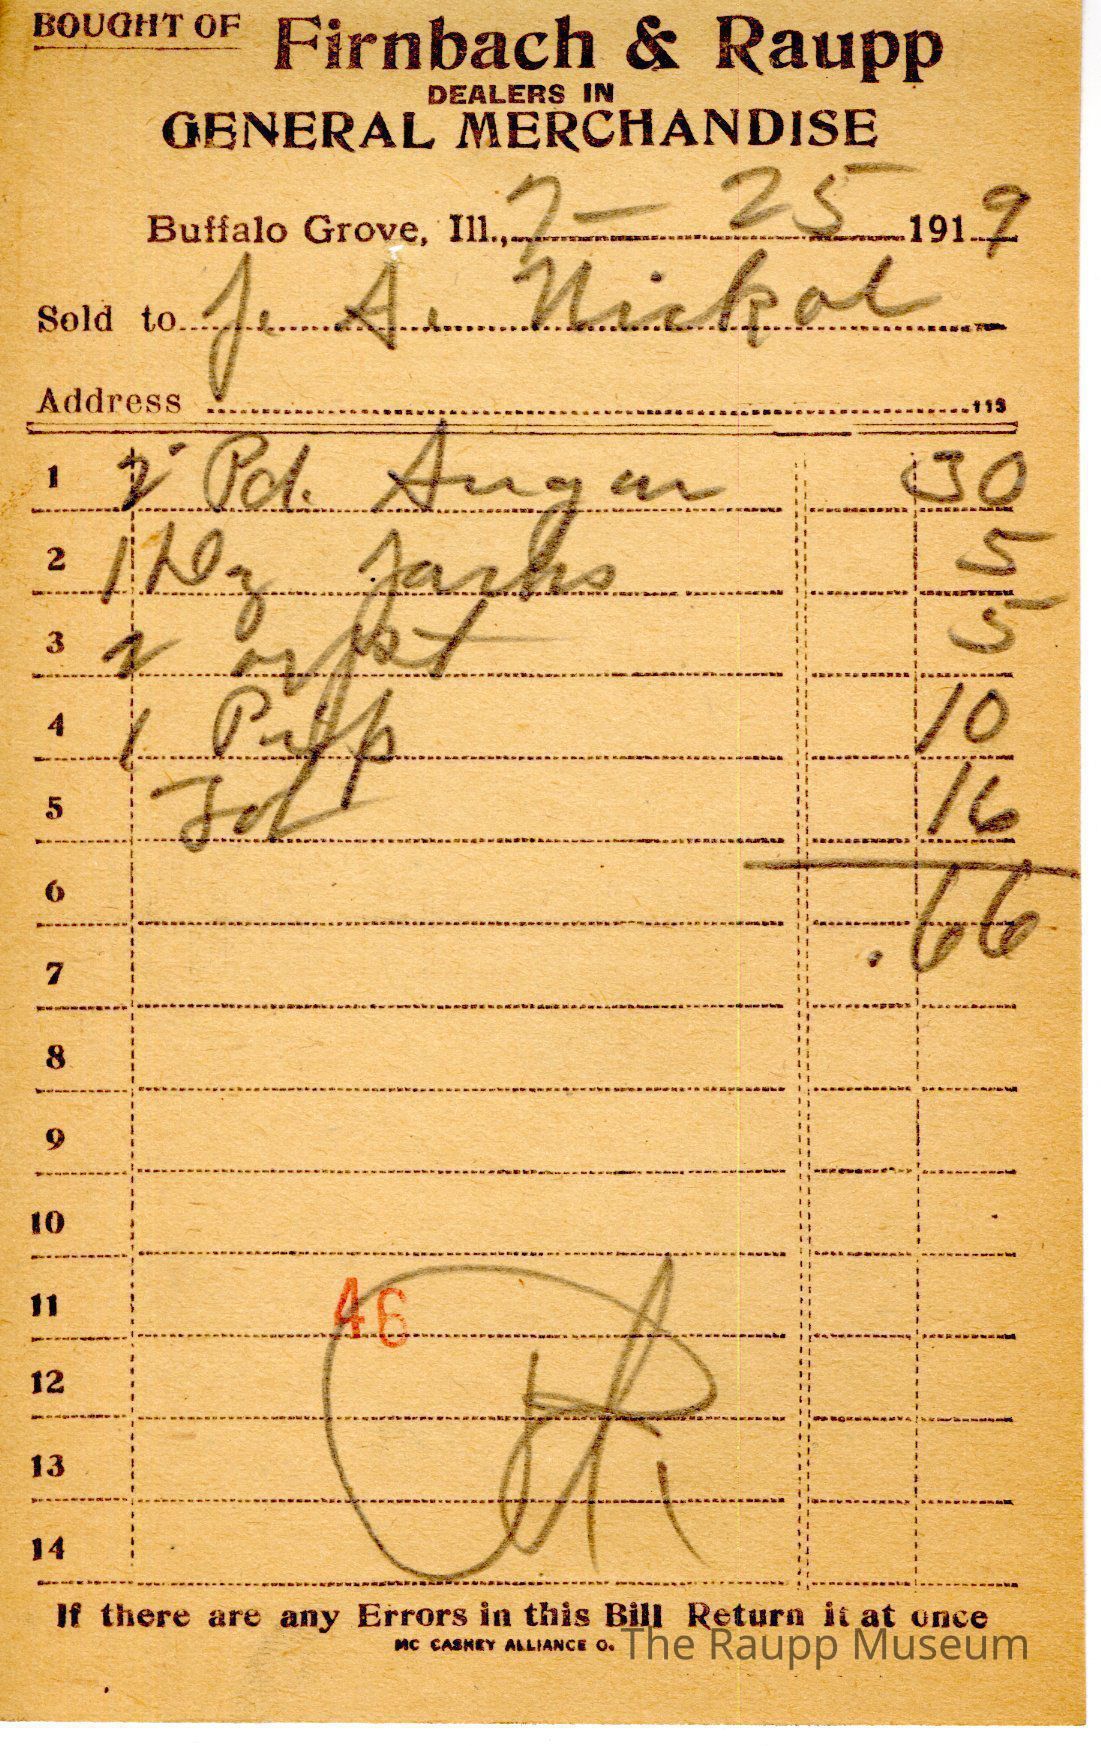 BOUGHT OF Firnbach & Raupp
DEALERS IN
GENERAL MERCHANDISE
Buffalo Grove, Ill., 7- 25 1919
Sold to J. A. Nickol
Address 113
1 2 Pd. Sugar 30
2 1 Dz Jar 5
3 2 5
4 1 10
5 16
6 .66
7
8
9
10
11 46
12
13
14
If there are any Errors in this Bill Return it at once
MC CASKEY ALLIANCE O.
The Raupp Museum